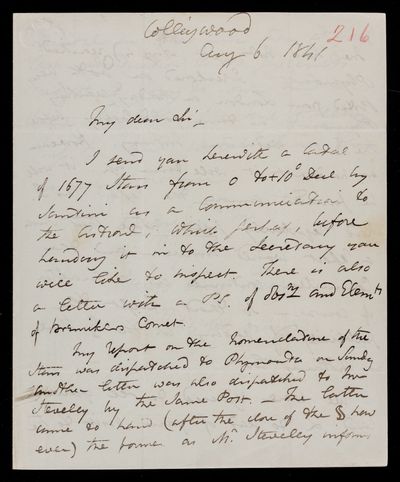 Collingwood
Aug 6 1841
216
My dear Sir_
I send you herewith a Catal
of 1677 Stars from 0 to +10° Decl by
Santini as a Communication to
the Astron. S, which perhaps, before
handing it in to the Secretary you
will like to inspect. There is also
a letter with a P.S. of Obsns and Elemts
of Bremiker's Comet.
My report on the Nomenclature of the
Stars was dispatched to Plymouth on Sunday
another letter was also dispatched to Mr
Stevelly by the same Post. _ The latter
came to hand (after the close of the § how
ever) the former as Mr Stevelly informs